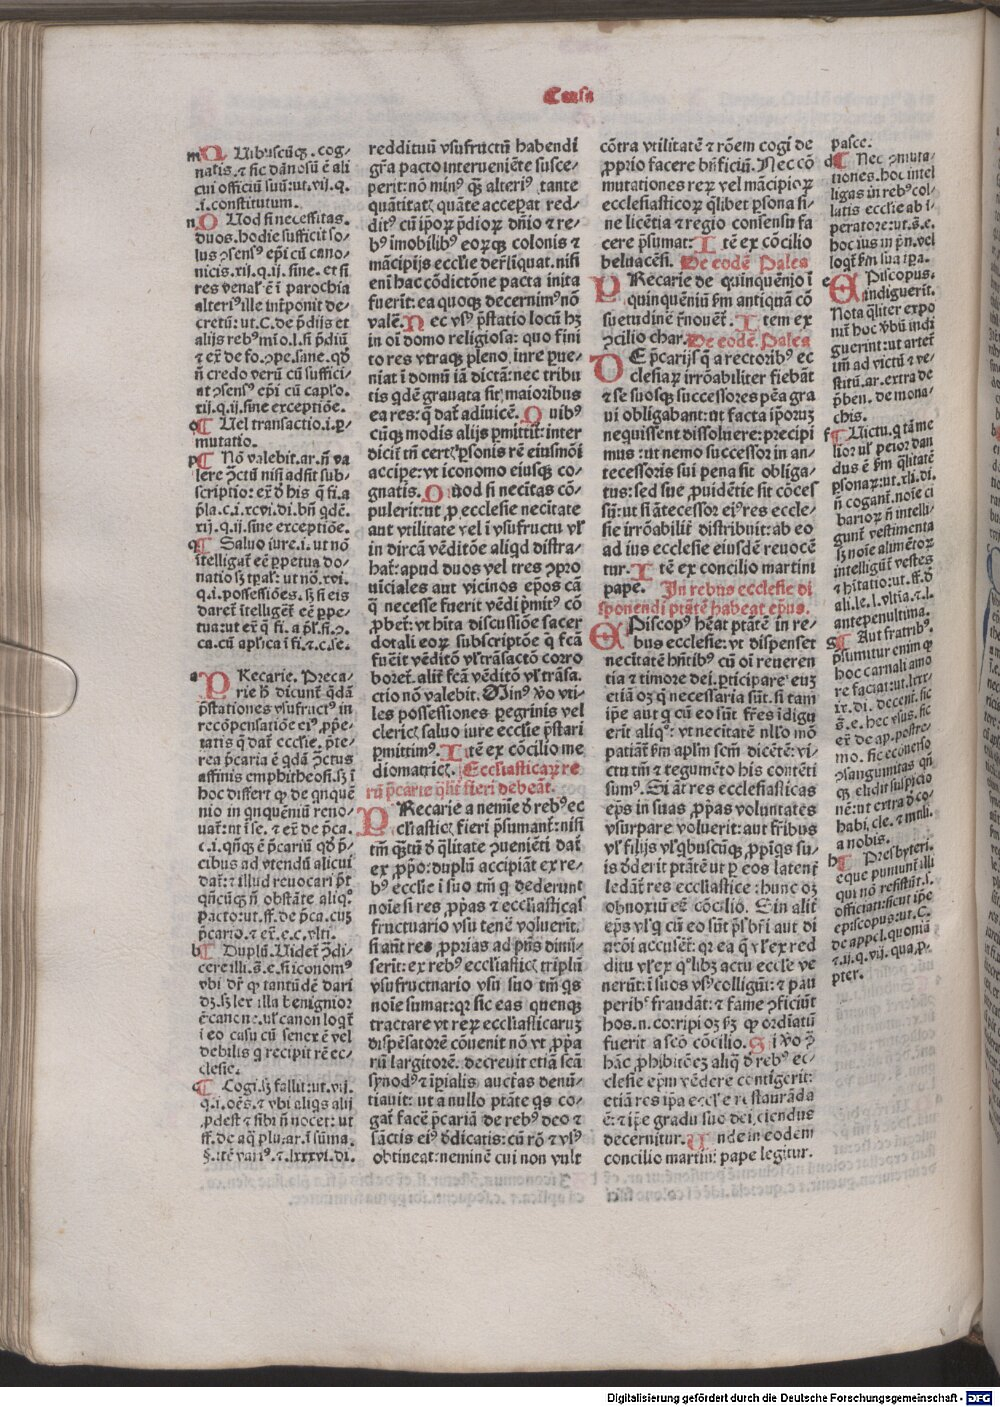 Causa
m Q Uibuscũqʒ. cog⸗
natis. ⁊ sic dãnosũ ẽ ali
cui officiũ suũ: ut. vij. q.
.i. constitutum.
n Q Uod si necessitas.
duos. hodie sufficit so⸗
lus ꝯsensꝰ ep̃i cũ cano⸗
nicis. xij. q. ij. sine. et si
res venał ẽ ĩ parochia
alteriꝰ ille intponit de⸗
cretũ: ut. C. de p̃dijs et
alijs rebꝰ mĩo. l. si p̃diũ
⁊ eẋ de fo. ꝯpe. sane. qđ
ñ credo verũ cũ suffici⸗
at ꝯsensꝰ ep̃i cũ caplo.
xij. q. ij. sine exceptiõe.
o ¶ Uel transactio. i. ꝑ⸗
mutatio.
p ¶ Nõ valebit. ar. ñ va
lere ꝯctũ nisi adsit sub⸗
scriptio: eẋ đ his q̃ fi. a
p̃la. c. i. xcvi. di. bñ qđẽ.
xij. q. ij. sine exceptiõe.
q ¶ Saluo iure. i. ut nõ
ĩtelligat̃ eẽ ꝑpetua do⸗
natio sʒ tp̃al: ut nõ. xvi.
q. i. possessiões. sʒ ñ eis
daret̃ ĩtelliget̃ eẽ ꝑpe⸗
tua: ut eẋ q̃ fi. a p̃l. fi. ꝯ.
ca. cũ aplica ĩ fi. ⁊. c. se.
a P Rekarie. Preca⸗
rie đ dicunt̃ qđã
p̃stationes vsufructꝰ in
recõpensatiõe eiꝰ ꝓpe⸗
tatis q̃ dat̃ ecclie. p̃te⸗
rea p̃caria ẽ qđã ꝯctus
affinis emphitheosi. sʒ ĩ
hoc differt qꝫ de qnquẽ
nio in qnquẽniũ reno⸗
uat̃: ut ĩ se. ⁊ eẋ de p̃ca.
c. i. qñqʒ ẽ p̃cariũ qđ p̃⸗
cibus ad vtendũ alicui
dat̃: ⁊ illud reuocari p̃t
qñcũqʒ ñ obstãte aliqͦ
pacto: ut. ff. de p̃ca. cuʒ
p̃cario. ⁊ eẋ. e. c. vlti.
b ¶ Duplũ. Uidet̃ ꝯdi⸗
cere illi. s. e. si iconomꝰ
vbi dr̃ qꝫ tantũdẽ dari
dʒ. sʒ lex illa benignior
ẽ canone. ul canon loqt̃
ĩ eo casu cũ senex ẽ vel
debilis q recipit rẽ ec⸗
clesie.
c ¶ Cogi. sʒ fallit: ut. vij.
q. i. oẽs. ⁊ vbi aliqs alij
ꝓdest ⁊ sibi ñ nocet: ut
ff. de aq̃ plu. ar. ĩ sũma.
§. itẽ variꝰ. ⁊. lxxxvi. di.
reddituũ vsufructũ habendi
gr̃a pacto interueniẽte susce⸗
perit: nõ minꝰ qʒ alteriꝰ tante
quãtitat̃ quãte acceperat red⸗
ditꝰ cũ ip̃oꝝ p̃dioꝝ dñio ⁊ re⸗
bꝰ ĩmobilibꝰ eoꝝqʒ colonis ⁊
mãcipijs ecclie đel̃iquat. nisi
eni hac cõdictõne pacta inita
fuerit: ea quoqʒ decernimꝰ nõ
valẽ. Nec vsꝰ p̃statio locũ hʒ
in oĩ domo religiosa: quo fini
to res vtraqʒ pleno inre ꝓue⸗
niat ĩ domũ iã dictã: nec tribu
tis qđẽ grauata sit maioribus
ea res: q̃ dat̃ adiuicẽ. Quibꝰ
cũqʒ modis alijs ꝑmittit̃: inter
dicit̃ tm̃ cert̃ ꝑsonis rẽ eiusmõi
accipe: vt iconomo eiusqʒ co⸗
gnatis. Quod si necitas cõ⸗
pulerit: ut ꝓ ecclesie necitate
aut vtilitate vel ĩ vsufructu vl
in dircã vẽditõe aliqđ distra⸗
hat̃: apud duos vel tres ꝯpro
uiciales aut vicinos ep̃os cã
q̃ necesse fuerit vẽdi p̃mitꝰ cõ
ꝓbet̃: vt hita discussiõe sacer
dotali eoꝝ subscriptõe q̃ fcã
fuẽit vẽditõ vl trãsactõ corro
boret̃. alit̃ fcã vẽditõ vl trãsa.
ctio nõ valebit. Minꝰ vo vti⸗
les possessiones peregrinis vel
cleric̃ saluo iure ecclie p̃stari
ꝑmittimꝰ. Itẽ ex cõcilio me
diomatric̃. Ecclesiasticaꝝ re
rũ p̃carie qlit̃ fieri debeãt.
P Recarie a nemĩe đ rebꝰ ec
cliastic̃ fieri p̃sumant̃: nisi
tm̃ qʒtũ đ q̃litate ꝯueniẽti dat̃
ex ꝓpo: duplũ accipiãt ex re⸗
bꝰ ecclie ĩ suo tm̃ q dederunt
noĩe si res ꝓpas ⁊ ecclasticas
fructuario vsu tenẽ voluerit.
si añt res ꝓprias ad p̃ns dimi⸗
serit: ex rebꝰ ecclasticʒ triplũ
vsufructuario vsu suo tm̃ qs
noĩe sumat: qr sic eas quenqʒ
tractare vt reꝝ eccliasticaruʒ
dispẽsatorẽ cõuenit nõ vt ꝓpa
rũ largitorẽ. decreuit etiã scã
synodꝰ ⁊ ĩpialis auctas denũ⸗
tiauit: ut a nullo ptãte qs co⸗
gat̃ facẽ p̃cariã de rebꝰ deo ⁊
sãctis eiꝰ đdicatis: cũ rõ ⁊ vsꝰ
obtineat: neminẽ cui non vult
cõtra vtilitatẽ ⁊ rõem cogi de
ꝓprio facere bñficiũ. Nec cõ
mutationes reꝝ vel mãcipioꝝ
ecclesiasticoꝝ q̃libet ꝑsona si⸗
ne licẽtia ⁊ regio consensu fa
cere p̃sumat: Itẽ ex cõcilio
beluacẽsi. De eodẽ Palea
P Recarie de quinquẽnio ĩ
quinquẽniũ ẽm antiquã cõ
suetudinẽ r̃nouent̃. Item ex
ꝯcilio char. De eodẽ. Palea
D E p̃carijs q̃ a rectoribꝰ ec
clesiaꝝ irrõabiliter fiebãt
⁊ se suosqʒ successores pẽa gra
ui obligabant: ut facta ip̃oruʒ
nequissent dissoluere: precipi
mus: ut nemo successor in an⸗
tecessoris sui pena sit obliga⸗
tus: sed sue ꝓuidẽtie sit cõces
sũ: ut si ãtecessor eiꝰ res eccle⸗
sie irrõabilit̃ distribuit: ab eo
ad ius ecclesie eiusdẽ reuocẽ
tur. Itẽ ex concilio martini
pape. In rebus ecclesie di
sponendi ptãtẽ habeat ep̃us.
E Piscopꝰ hẽat ptãtẽ in re⸗
bus ecclesie: vt dispenset
necitatẽ hñtibꝰ cũ oĩ reueren
tia ⁊ timore dei. ꝑticipare euʒ
etiã oʒ q̃ necessaria sũt. si tam
ip̃e aut q cũ eo sũt fr̃es ĩdigu
erit aliqͦ: vt necitatẽ nllo mõ
patiãt̃ ẽm aplm scm̃ dicẽtẽ: vi⸗
ctu tm̃ ⁊ tegumẽto his contẽti
sumꝰ. Si ãt res ecclesiasticas
ep̃s in suas ꝓpas voluntates
vsurpare voluerit: aut fribus
vl filijs vl qbuscũqʒ ꝓpiqs su⸗
is đderit ptãtẽ ut ꝑ eos latent̃
ledãt̃ res ecclesiastice: hunc oʒ
obnoxiũ eẽ cõcilio. Sin alit̃
ep̃s vl q cũ eo sũt p̃sbri aut di
acõi accuset̃: qr ea q̃ vl ex red
ditu vl ex qͦlibʒ actu eccle ve
nerũt: ĩ suos vsꝰ colligũt̃: ⁊ pau
peribꝰ fraudãt̃: ⁊ fame ꝯficiũt̃
hos. n. corripi oʒ ẽʒ qꝫ ordĩatũ
fuerit a scõ cõcilio. Si vo ꝑ
hãc ꝓhibitẽeʒ aliq̃ đ rebꝰ ec⸗
clesie ep̃m vẽdere contigerit:
etiã res ip̃a eccle restaurãda
ẽ: ⁊ ip̃e gradu suo deijciendus
decernitur. Unde in eodem
concilio martini pape legitur.
pasce.
d ¶ Nec ꝯmuta⸗
tiones. hoc intel
ligas in rebꝰ col⸗
latis ecclie ab i⸗
peratore: ut. s. e.
hoc ius in p̃n. vel
loqt̃ ẽm sua tp̃a.
e E Piscopus.
indiguerit.
Nota qliter expo
nit̃ hoc vbũ indi
guerint: ut artet̃
tm̃ ad victũ ⁊ ve⸗
stitũ. ar. extra de
p̃ben. de mona⸗
chis.
f ¶ Uictu. q̃ tã me
lior ul peior dan
dus ẽ ẽm q̃litatẽ
ꝑsonaꝝ: ut. xli. di.
ñ cogant̃. noĩe ci
barioꝝ ñ intelli⸗
gunt̃ vestimenta
sʒ noĩe alimẽtoꝝ
intelligũt̃ vestes
⁊ hitatio: ut. ff. đ
ali. le. l. vltia. ⁊. l.
antepenultima.
g ¶ Aut fratribꝰ.
p̃sumitur enim qꝫ
hoc carnali amo
re faciat: ut. lxxx⸗
ix. di. decent̃. sic
s. e. hec vsus. sic
eẋ de ap. postre⸗
mo. sic econerso
ꝯsanguinitas qñ
qʒ elidit suspicio
nẽ: ut extra đ co⸗
habi. cle. ⁊ muli.
a nobis.
h ¶ Presbyteri.
eque puniunt̃ illi
qui nõ resistũt. s.
officiati: sicut ip̃e
episcopus: ut. C.
de appel. quoniã
⁊. ij. q. vij. qua. ꝓ⸗
pter.
Digitalisierung gefördert durch die Deutsche Forschungsgemeinschaft - DFG